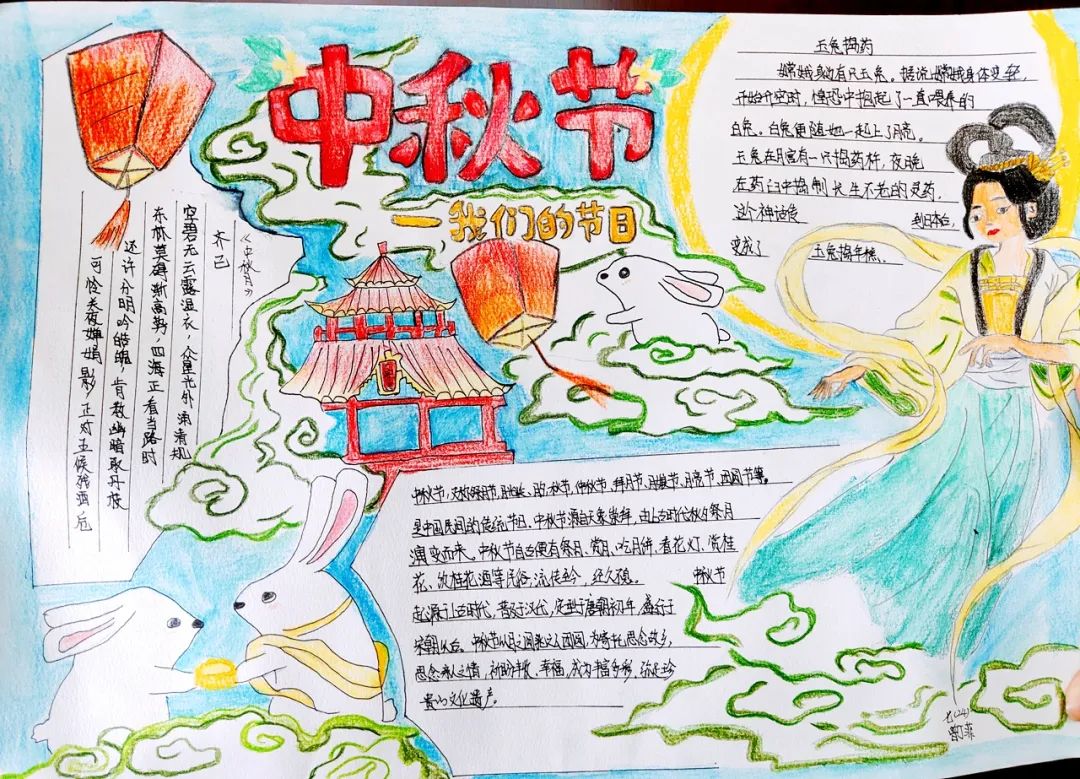 中秋节
一我们的节日
《中秋月》
齐己
空碧无云露湿衣，众星光外涌清规
东林莫碍渐高势，四海正看当路时
还许分明吟皓魄，肯教幽暗取丹枝
可怜夜婵娟影，正对五候残酒卮
玉兔捣药
嫦娥身边有只玉兔。据说嫦娥身体变轻，
开始升空时，惶恐中抱起了一直喂养的
白兔。白兔便随她一起上了月亮。
玉兔在月宫有一只捣药杵，夜晚
在药臼中捣制长生不老的灵药。
这个神话传 到日本后，
变成了 玉兔捣年糕。
中秋节，又称祭月节、秋节、仲秋节、拜月节、月亮节、团圆节等。
是中国民间的传统节日。中秋节源自天象崇拜，由上古时代秋夕祭月
演变而来。中秋节自古便有祭月、赏月、吃月饼、看花灯、赏桂
花、饮桂花酒等民俗，流传至今，经久不息。 中秋节
起源于上古时代，普及于汉代，定型于唐朝初年，盛行于
宋朝以后。中秋节以月之圆兆人之团圆，为寄托思念故乡，
思念亲人之情，祈盼丰收、幸福，成为丰富多彩、弥足珍
贵的文化遗产。